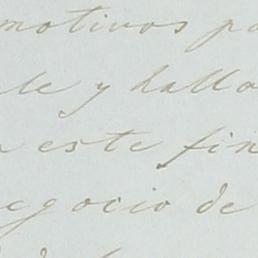 motivos pa
le y halla
a este fin
negocio de